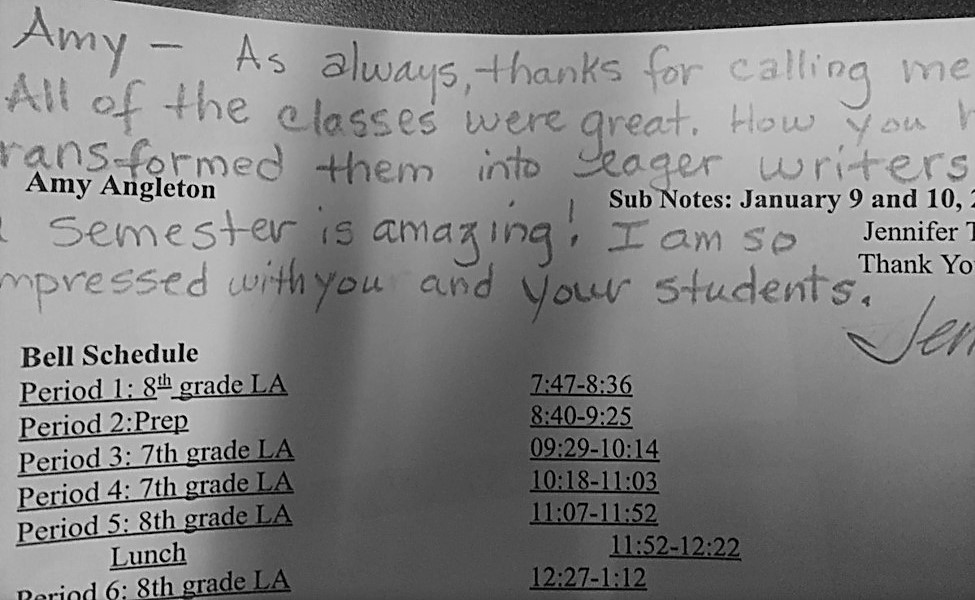 Amy - As always, thanks for calling me
All of the classes were great. How you
ransformed them into eager writers
Amy Angleton
Sub Notes: January 9 and 10,
semester is amazing! I am so
Jennifer T
mpressed with you and your students.
Thank Yo
Jen
Bell Schedule
Period 1: 8th grade LA 7:47-8:36
Period 2:Prep 8:40-9:25
Period 3: 7th grade LA 09:29-10:14
Period 4: 7th grade LA 10:18-11:03
Period 5: 8th grade LA 11:07-11:52
Lunch 11:52-12:22
Period 6: 8th grade LA 12:27-1:12